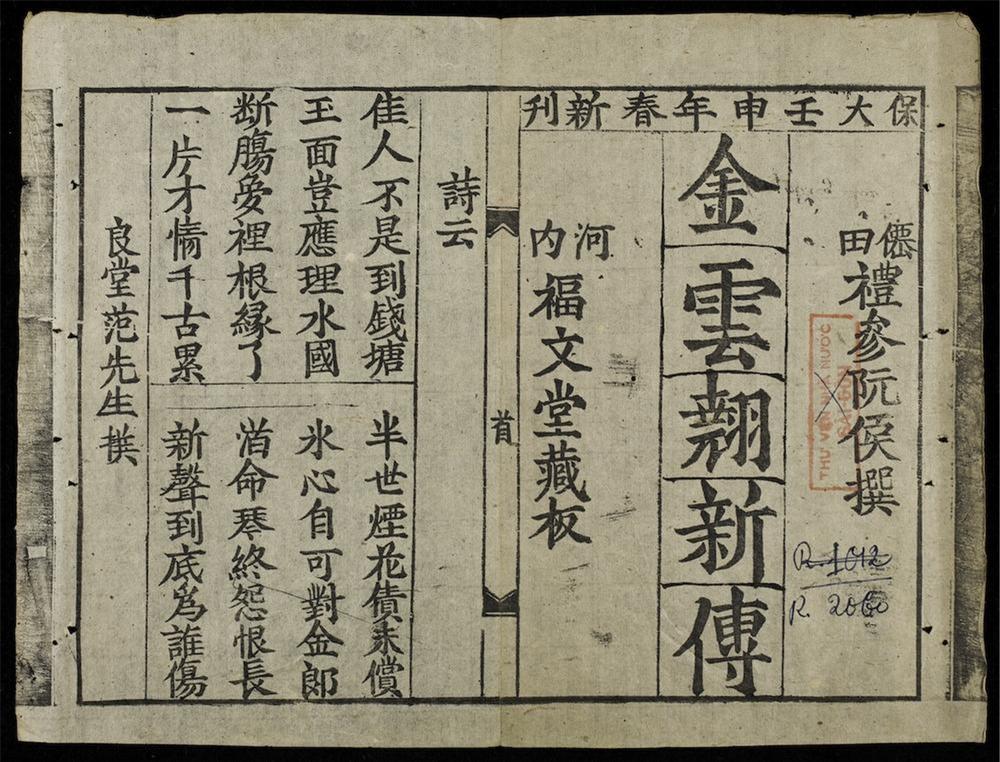 保大壬申年春新刊
僊田禮參阮侯撰
金雲翹新傳
河内福文堂藏板
首
詩云
佳人不是到錢塘 半世煙花債未償
玉面豈應理水國 氷心自可對金郎
断膓夢裡根縁了 命琴終怨恨長
一片才情千古累 新聲到底爲誰傷
良堂范先生撰
THƯ VIỆN NHÀ NƯỚC
R. 1012
R. 2060